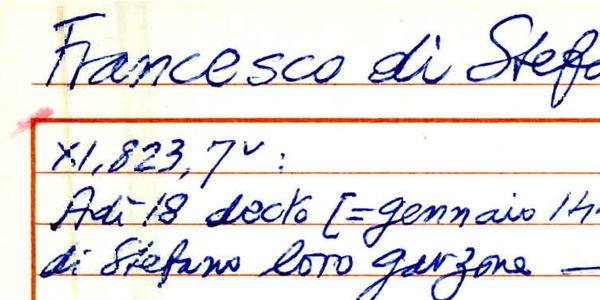 Francesco di Stefa
XI, 823, 7v:
Adì 18 decto [=gennaio 14
di Stefano loro garzone —